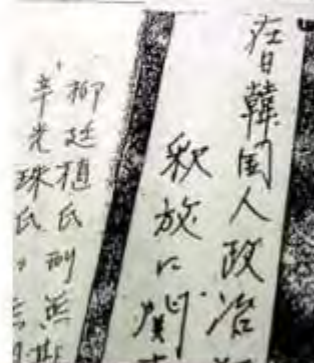 在日韓国人政治
釈放に関
柳廷植氏
辛光珠氏